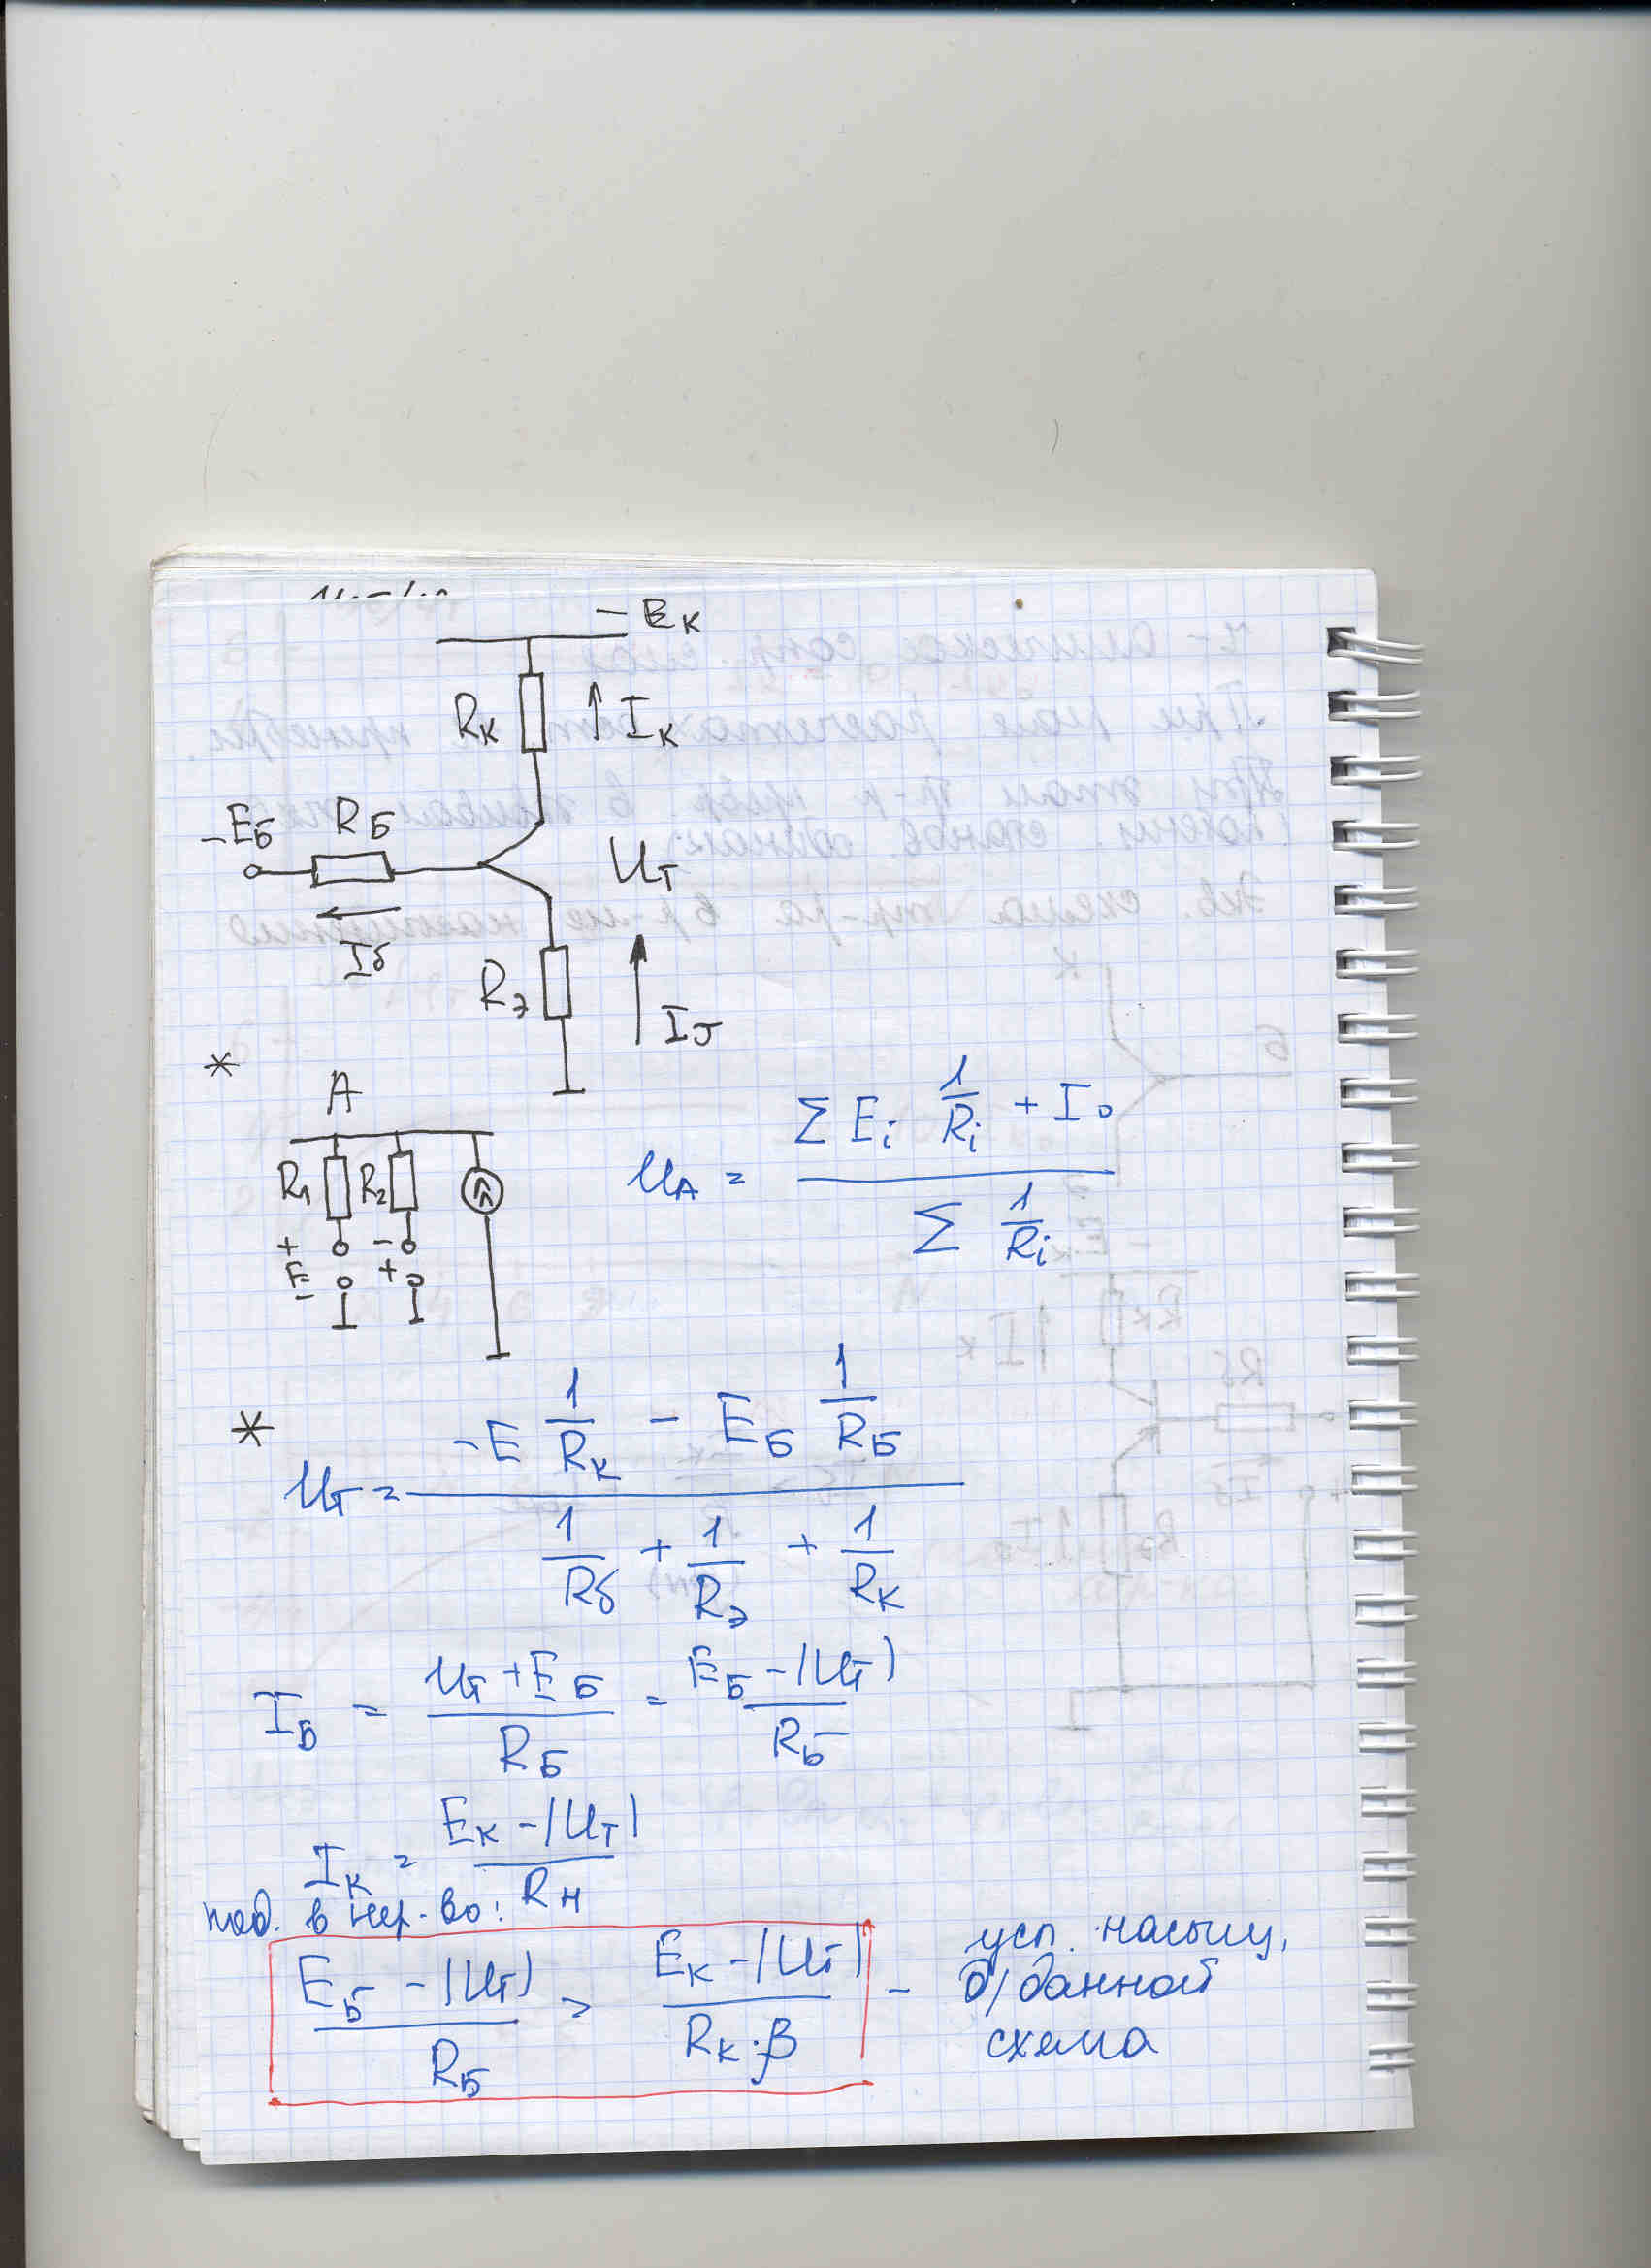 - Eк
Rк ↑ Iк
-EБ RБ
Uт
Iб
Rэ
Iэ
*
A
R₁ R₂
+ -
E +
-
UA = (∑ Ei 1/Ri + I₀) / (∑ 1/Ri)
*
Uт = (-E 1/Rк - EБ 1/RБ) / (1/Rб + 1/Rэ + 1/Rк)
IБ = (Uт + EБ)/RБ = (EБ - |Uт|)/RБ
Iк = (Eк - |Uт|)/Rн
под. в нер-во:
(EБ - |Uт|)/RБ > (Eк - |Uт|)/(Rк·β) - усл. насыщ.
д/данной
схема